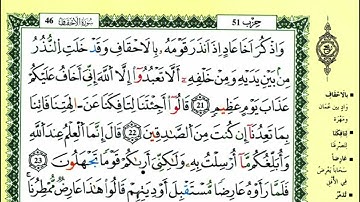 سُورَةُ الأَحْقَافِ 46
حِزْب 51
وَاذْكُرْ أَخَا عَادٍ إِذْ أَنذَرَ قَوْمَهُ بِالْأَحْقَافِ وَقَدْ خَلَتِ النُّذُرُ
مِنْ بَيْنِ يَدَيْهِ وَمِنْ خَلْفِهِ أَلَّا تَعْبُدُوا إِلَّا اللَّهَ إِنِّي أَخَافُ عَلَيْكُمْ
عَذَابَ يَوْمٍ عَظِيمٍ 21 قَالُوا أَجِئْتَنَا لِتَأْفِكَنَا عَنْ آلِهَتِنَا فَأْتِنَا
بِمَا تَعِدُنَا إِن كُنتَ مِنَ الصَّادِقِينَ 22 قَالَ إِنَّمَا الْعِلْمُ عِندَ اللَّهِ
وَأُبَلِّغُكُم مَّا أُرْسِلْتُ بِهِ وَلَٰكِنِّي أَرَاكُمْ قَوْمًا تَجْهَلُونَ 23
فَلَمَّا رَأَوْهُ عَارِضًا مُّسْتَقْبِلَ أَوْدِيَتِهِمْ قَالُوا هَٰذَا عَارِضٌ مُّمْطِرُنَا
بِالأحْقَافِ
وادٍ بين عُمَان
ومَهْرَة
لِتَأْفِكَنَا
لِتَصْرِفَنَا
عَارِضًا
سَحَابًا يَعْرِضُ
في الأُفُقِ
تُدَمِّرُ